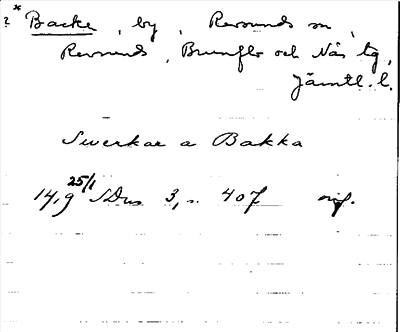 ? * Backe, by, Revsunds sn,
Revsunds, Brunflo och Näs tg,
Jämtl. l.
Swerkae a Bakka
14,9 25/1 SDns 3, s. 407 orig.